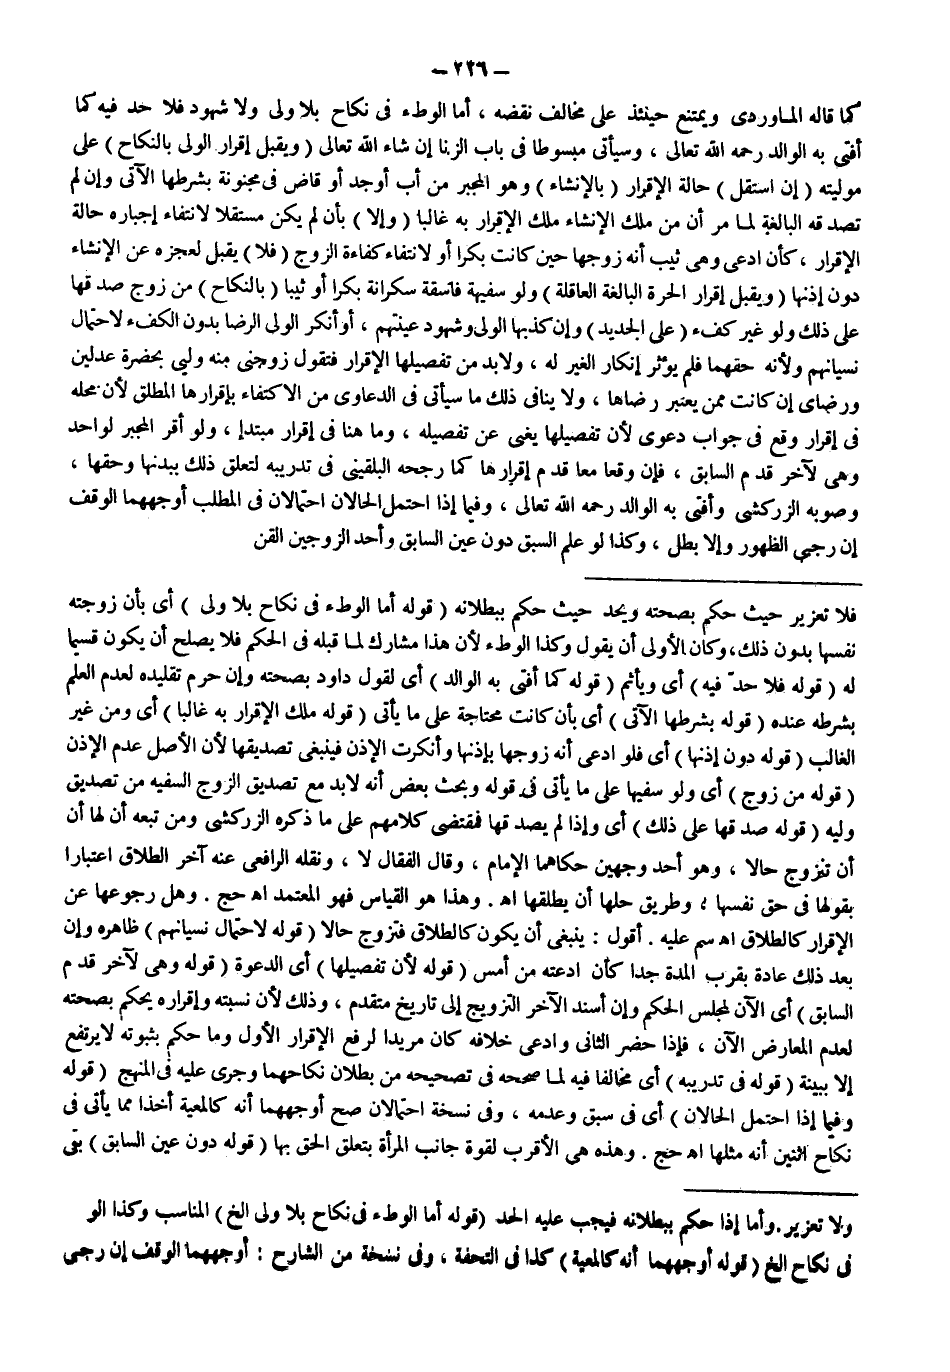 – ٢٢٦ –
كما قاله الماوردى ويمتنع حينئذ على مخالف نقضه ، أما الوطء فى نكاح بلا ولى ولا شهود فلا حد فيه كما
أفتى به الوالد رحمه الله تعالى ، وسيأتى مبسوطا فى باب الزنا إن شاء الله تعالى ( ويقبل إقرار الولى بالنكاح ) على
موليته ( إن استقل ) حالة الإقرار ( بالإنشاء ) وهو المجبر من أب أوجد أو قاض فى مجنونة بشرطها الآتى وإن لم
تصدقه البالغة لما مر أن من ملك الإنشاء ملك الإقرار به غالبا ( وإلا ) بأن لم يكن مستقلا لانتفاء إجباره حالة
الإقرار ، كأن ادعى وهى ثيب أنه زوجها حين كانت بكرا أو لانتفاء كفاءة الزوج ( فلا ) يقبل لعجزه عن الإنشاء
دون إذنها ( ويقبل إقرار الحرة البالغة العاقلة ) ولو سفيهة فاسقة سكرانة بكرا أو ثيبا ( بالنكاح ) من زوج صدقها
على ذلك ولو غير كفء ( على الجديد ) وإن كذبها الولى وشهود عينتهم ، أو أنكر الولى الرضا بدون الكفء لاحتمال
نسيانهم ولأنه حقهما فلم يؤثر إنكار الغير له ، ولابد من تفصيلها الإقرار فتقول زوجنى منه وليي بحضرة عدلين
ورضاى إن كانت ممن يعتبر رضاها ، ولا ينافى ذلك ما سيأتى فى الدعاوى من الاكتفاء بإقرارها المطلق لأن محله
فى إقرار وقع فى جواب دعوى لأن تفصيلها يغنى عن تفصيله ، وما هنا فى إقرار مبتدإ ، ولو أقر المجبر لواحد
وهى لآخر قدم السابق ، فإن وقعا معا قدم إقرارها كما رجحه البلقينى فى تدريبه لتعلق ذلك ببدنها وحقها ،
وصوبه الزركشى وأفتى به الوالد رحمه الله تعالى ، وفيما إذا احتمل الحالان احتمالان فى المطلب أوجههما الوقف
إن رجى الظهور وإلا بطل ، وكذا لو علم السبق دون عين السابق وأحد الزوجين القن
فلا تعزير حيث حكم بصحته ويحد حيث حكم ببطلانه ( قوله أما الوطء فى نكاح بلا ولى ) أى بأن زوجته
نفسها بدون ذلك، وكان الأولى أن يقول وكذا الوطء لأن هذا مشارك لما قبله فى الحكم فلا يصلح أن يكون قسيما
له ( قوله فلا حدّ فيه ) أى ويأثم ( قوله كما أفتى به الوالد ) أى لقول داود بصحته وإن حرم تقليده لعدم العلم
بشرطه عنده ( قوله بشرطها الآتى ) أى بأن كانت محتاجة على ما يأتى ( قوله ملك الإقرار به غالبا ) أى ومن غير
الغالب ( قوله دون إذنها ) أى فلو ادعى أنه زوجها بإذنها وأنكرت الإذن فينبغى تصديقها لأن الأصل عدم الإذن
( قوله من زوج ) أى ولو سفيها على ما يأتى فى قوله وبحث بعض أنه لابد مع تصديق الزوج السفيه من تصديق
وليه ( قوله صدقها على ذلك ) أى وإذا لم يصدقها فمقتضى كلامهم على ما ذكره الزركشى ومن تبعه أن لها أن
أن تتزوج حالا ، وهو أحد وجهين حكاهما الإمام ، وقال القفال لا ، ونقله الرافعى عنه آخر الطلاق اعتبارا
بقولها فى حق نفسها ، وطريق حلها أن يطلقها اهـ . وهذا هو القياس فهو المعتمد اهـ حج . وهل رجوعها عن
الإقرار كالطلاق اهـ سم عليه . أقول : ينبغى أن يكون كالطلاق فتزوج حالا ( قوله لاحتمال نسيانهم ) ظاهره وإن
بعد ذلك عادة بقرب المدة جدا كأن ادعته من أمس ( قوله لأن تفصيلها ) أى الدعوة ( قوله وهى لآخر قدم
السابق ) أى الآن لمجلس الحكم وإن أسند الآخر التزويج إلى تاريخ متقدم ، وذلك لأن نسبته وإقراره يحكم بصحته
لعدم المعارض الآن ، فإذا حضر الثانى وادعى خلافه كان مريدا لرفع الإقرار الأول وما حكم بثبوته لا يرتفع
إلا ببينة ( قوله فى تدريبه ) أى مخالفا فيه لما صححه فى تصحيحه من بطلان نكاحهما وجرى عليه فى المنهج ( قوله
وفيما إذا احتمل الحالان ) أى فى سبق وعدمه ، وفى نسخة احتمالان صح أوجههما أنه كالمعية أخذا مما يأتى فى
نكاح اثنين أنه مثلها اهـ حج . وهذه هى الأقرب لقوة جانب المرأة بتعلق الحق بها ( قوله دون عين السابق ) بقى
ولا تعزير . وأما إذا حكم ببطلانه فيجب عليه الحد ( قوله أما الوطء فى نكاح بلا ولى الخ ) المناسب وكذا الو
فى نكاح الخ ( قوله أوجههما أنه كالمعية ) كذا فى التحفة ، وفى نسخة من الشارح : أوجههما الوقف إن رجى